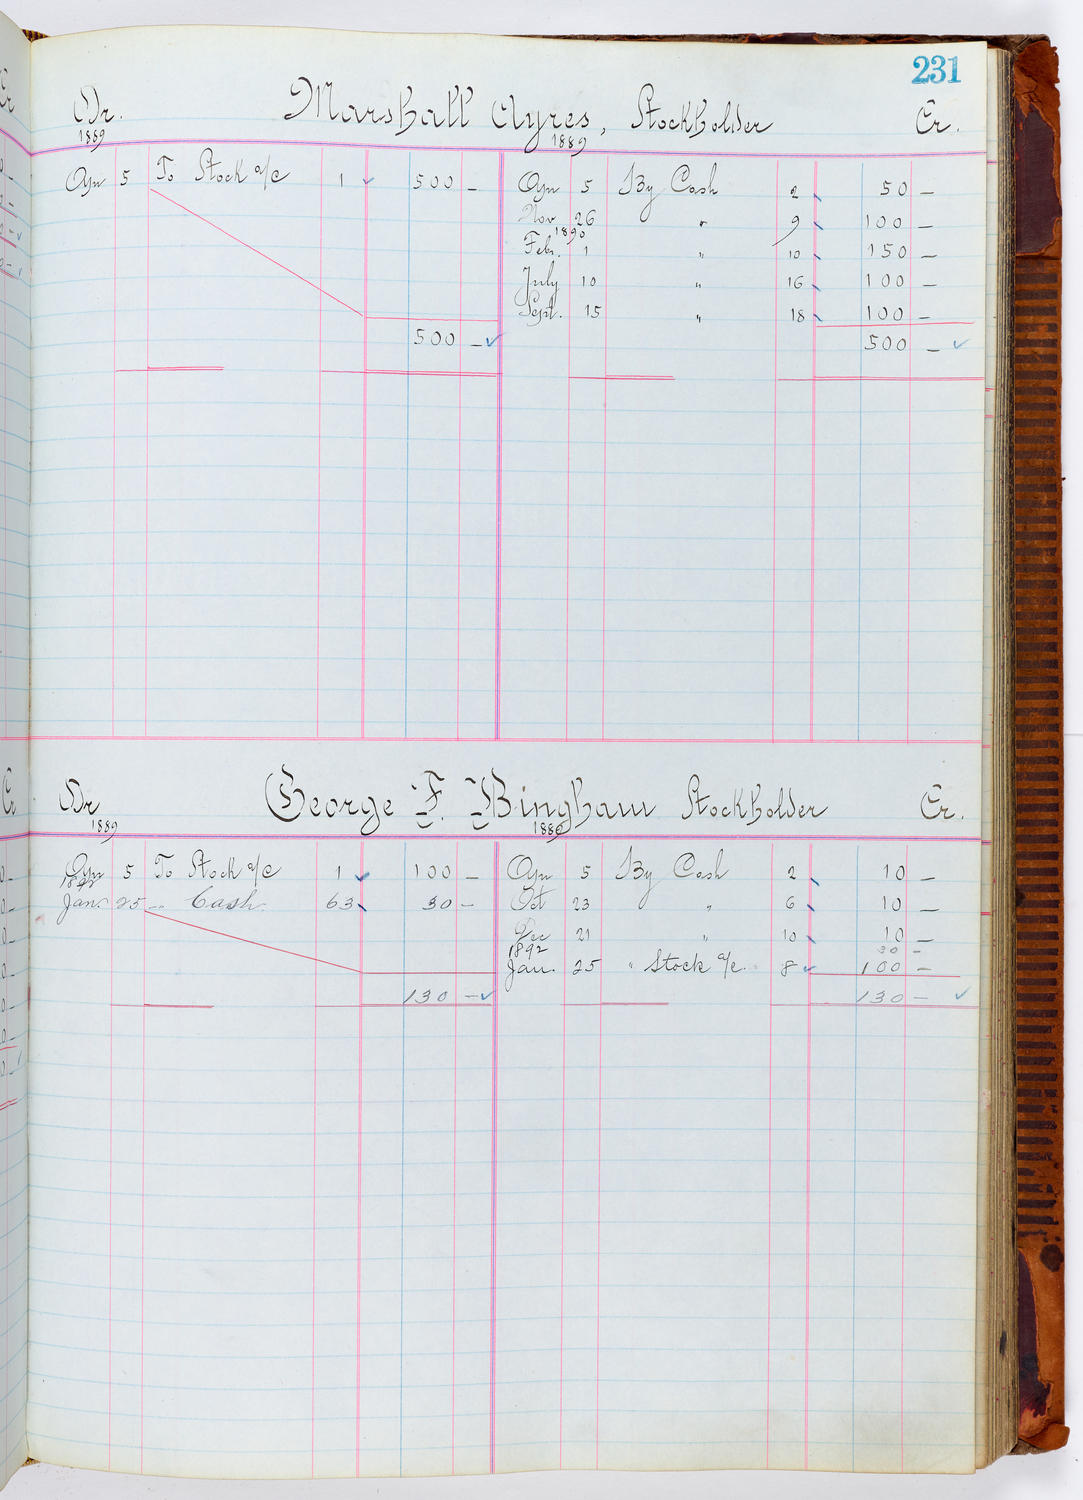 231
Dr. Marshall Ayres, Stockholder Cr.
1889 1889
Apr 5 To Stock a/c 1 500 — Apr 5 By Cash 2 50 —
Nov 26 " 9 100 —
1890
Feb. 1 " 10 150 —
July 10 " 16 100 —
Sept. 15 " 18 100 —
500 — 500 —
Dr George F. Bingham Stockholder Cr.
1889 1889
Apr 5 To Stock a/c 1 100 — Apr 5 By Cash 2 10 —
1892
Jan. 25 " Cash. 63 30 — Oct 23 " 6 10 —
Dec 21 " 10 10 —
1892 30 —
Jan. 25 " Stock a/c. 8 100 —
130 — 130 —